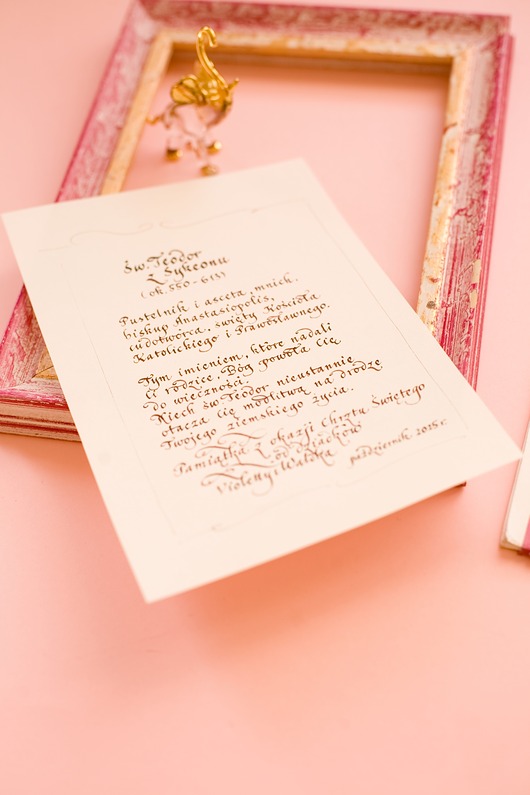 Św. Teodor
z Sykeonu
(ok. 550-613)
Pustelnik i asceta, mnich,
biskup Anastasiopolis,
cudotwórca, święty Kościoła
Katolickiego i Prawosławnego.
Tym imieniem, które nadali
Ci rodzice, Bóg powoła Cię
do wieczności.
Niech św. Teodor nieustannie
otacza Cię modlitwą na drodze
Twojego ziemskiego życia.
Pamiątka z okazji Chrztu Świętego
od Dziadków
Violetty i Waldka
październik 2018 r.